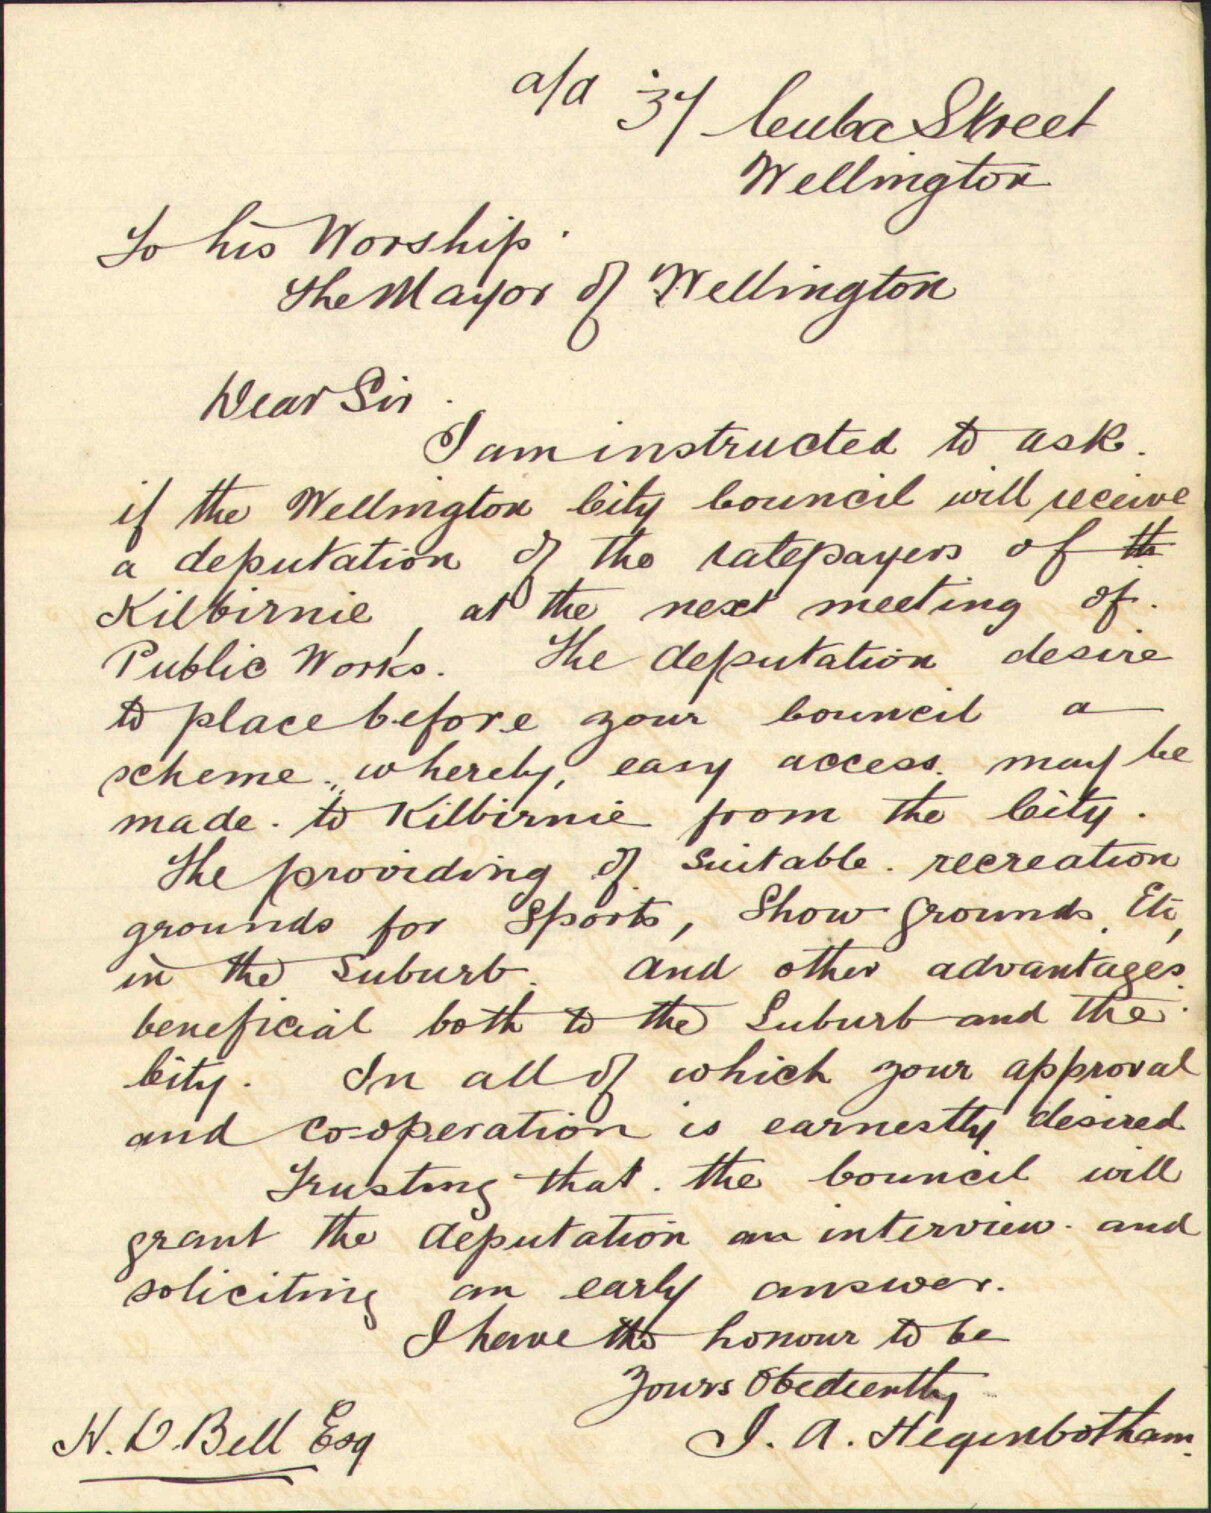 a/a 37 Cuba Street
Wellington
To his Worship.
The Mayor of Wellington
Dear Sir.
I am instructed to ask.
if the Wellington City Council will receive
a deputation of the ratepayers of th
Kilbirnie, at the next meeting of.
Public Works. The deputation desire
to place before your Council a
scheme, whereby, easy access. may be
made. to Kilbirnie from the City.
The providing of suitable. recreation
grounds for Sports, Show grounds, Etc,
in the Suburb. and other advantages.
beneficial both to the Suburb and the.
City. In all of which your approval
and co-operation is earnestly desired
Trusting that. the Council will
grant the deputation an interview. and
soliciting an early answer.
I have the honour to be
Yours Obediently
J. A. Heginbotham.
H. D. Bell Esq